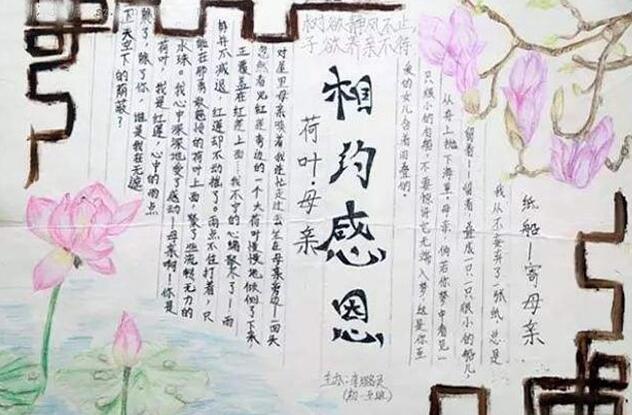 树欲静风不止,
子欲养亲不得
相约感恩
纸船—寄母亲
我从不妄弃了一张纸,总是
留着—留着,叠成一只一只很小的船儿,
从舟上抛下海里。母亲,倘若你梦中看见一
只很小的白船,不要惊讶它无端入梦。这是你至
爱的女儿含着泪叠的。
荷叶·母亲
对屋里母亲唤着我连忙走过去坐在母亲旁边—回头
忽然看见红莲旁边的一个大荷叶慢慢地倾侧了下来,
正覆盖在红莲上面…我不宁的心绪散尽了!雨
势并不减退,红莲却不动摇了。雨点不住打着,只
能在那勇敢慈怜的荷叶上面,聚了些流转无力的
水珠。我心中深深地受了感动—母亲啊!你是
荷叶,我是红莲,心中的雨点
来了,除了你,谁是我在无遮
天空下的荫蔽?
主办:
(初一五班)